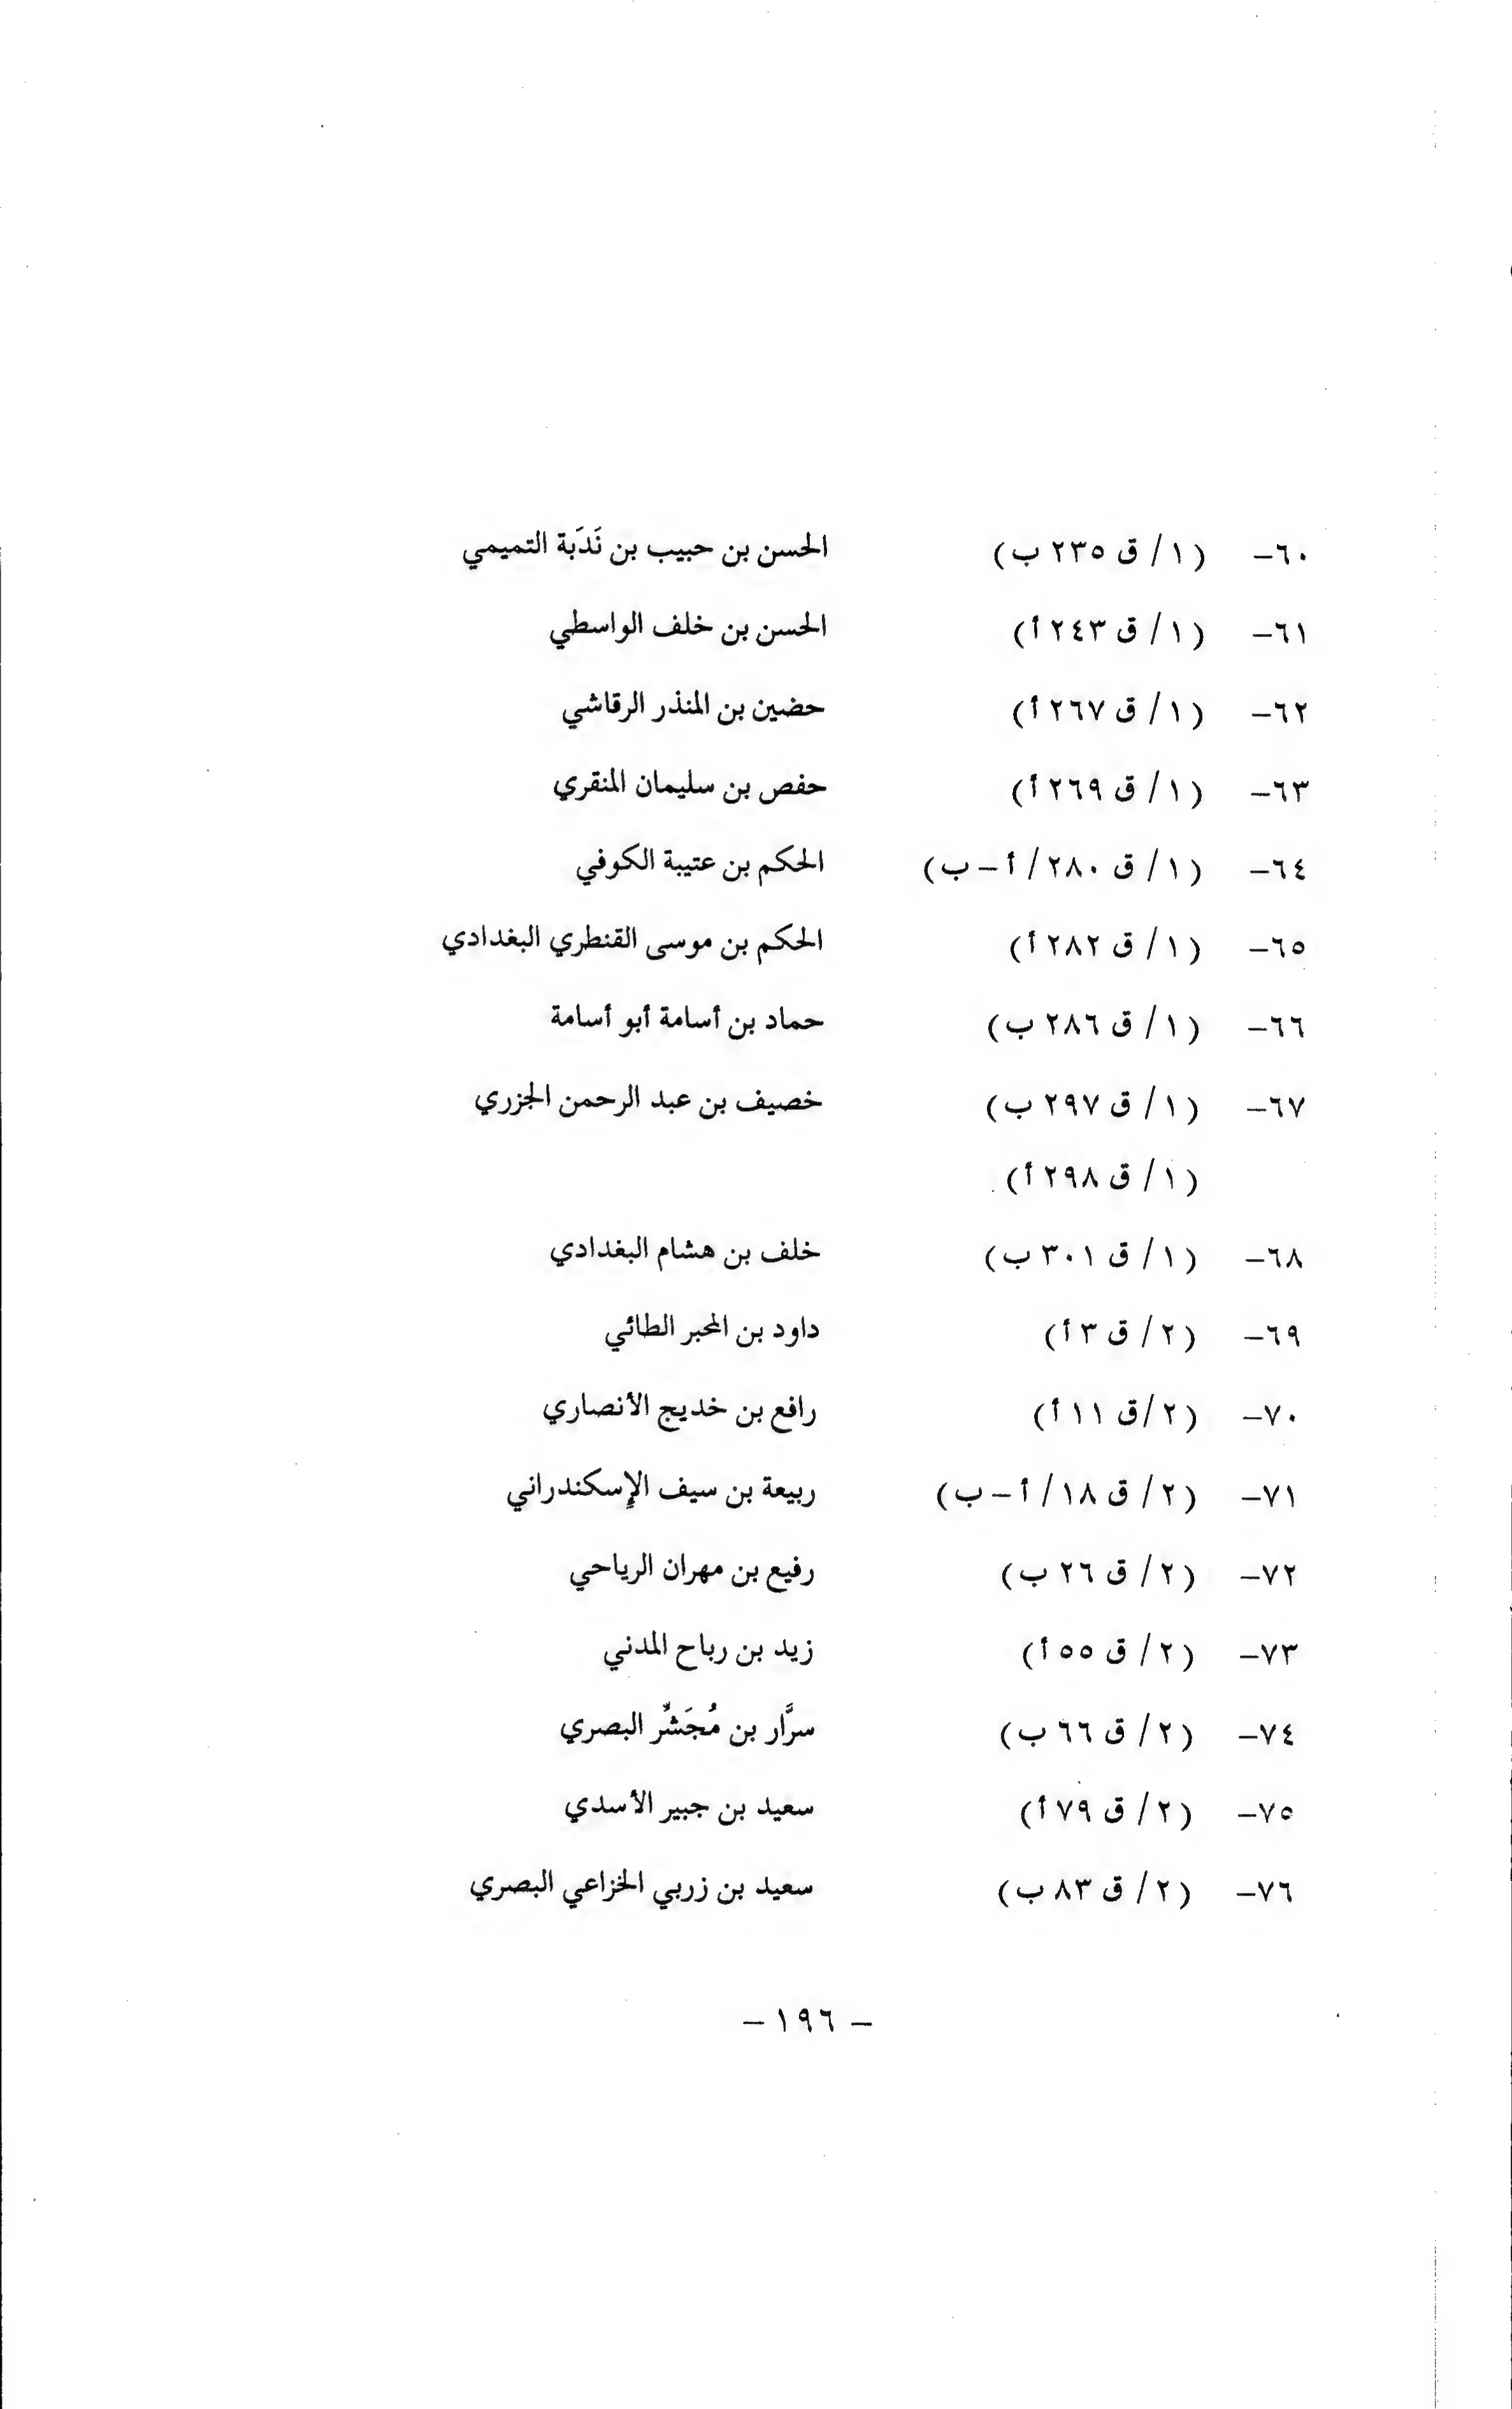 ٦٠- (١/ ق ٢٣٥ ب) الحسن بن حبيب بن نَدَبة التميمي
٦١- (١/ ق ٢٤٣ أ) الحسن بن خلف الواسطي
٦٢- (١/ ق ٢٦٧ أ) حضين بن المنذر الرقاشي
٦٣- (١/ ق ٢٦٩ أ) حفص بن سليمان المنقري
٦٤- (١/ ق ٢٨٠/ أ - ب) الحكم بن عتيبة الكوفي
٦٥- (١/ ق ٢٨٢ أ) الحكم بن موسى القنطري البغدادي
٦٦- (١/ ق ٢٨٦ ب) حماد بن أسامة أبو أسامة
٦٧- (١/ ق ٢٩٧ ب) خصيف بن عبد الرحمن الجزري
(١/ ق ٢٩٨ أ)
٦٨- (١/ ق ٣٠١ ب) خلف بن هشام البغدادي
٦٩- (٢/ ق ٣ أ) داود بن المحبر الطائي
٧٠- (٢/ق ١١ أ) رافع بن خديج الأنصاري
٧١- (٢/ ق ١٨/ أ - ب) ربيعة بن سيف الإسكندراني
٧٢- (٢/ ق ٢٦ ب) رفيع بن مهران الرياحي
٧٣- (٢/ ق ٥٥ أ) زيد بن رباح المدني
٧٤- (٢/ ق ٦٦ ب) سرَّار بن مُجَشِّر البصري
٧٥- (٢/ ق ٧٩ أ) سعيد بن جبير الأسدي
٧٦- (٢/ ق ٨٣ ب) سعيد بن زربي الخزاعي البصري
- ١٩٦ -